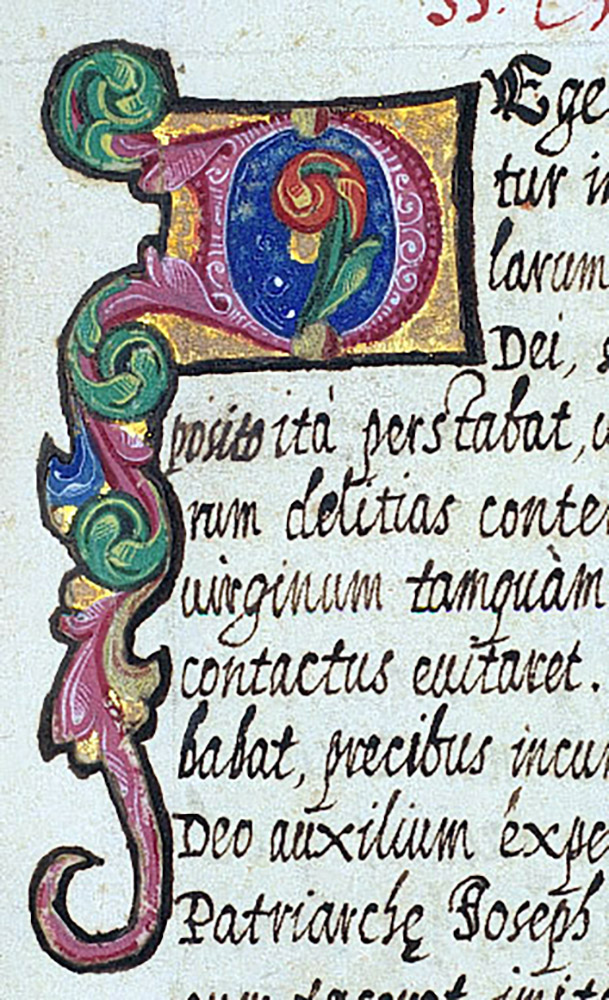 Ege
tur i
larum
Dei, s
posito ità perstabat, u
rum delitias conte
uirginum tamquàm
contactus euitaret.
babat, precibus incu
Deo auxilium expe
Patriarchę Joseph